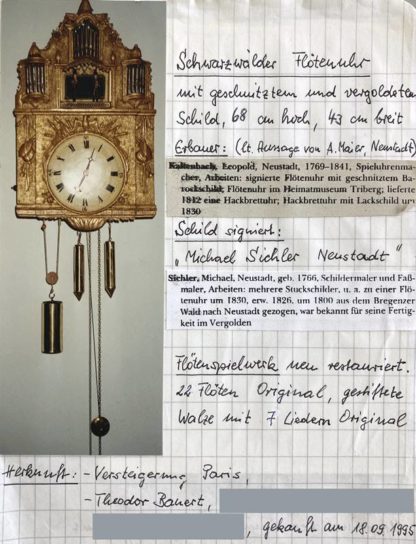 Schwarzwälder Flötenuhr
mit geschnitztem und vergoldeten
Schild, 68 cm hoch, 43 cm breit
Erbauer: (lt. Aussage von A. Maier Neustadt)
Kaltenbach, Leopold, Neustadt, 1769–1841, Spieluhrenma-
cher, Arbeiten: signierte Flötenuhr mit geschnitztem Ba-
rockschild, Flötenuhr im Heimatmuseum Triberg; lieferte
1812 eine Hackbrettuhr; Hackbrettuhr mit Lackschild um
1830
Schild signiert:
"Michael Sichler Neustadt"
Sichler, Michael, Neustadt, geb. 1766, Schildermaler und Faß-
maler, Arbeiten: mehrere Stuckschilder, u. a. zu einer Flö-
tenuhr um 1830, erw. 1826, um 1800 aus dem Bregenzer
Wald nach Neustadt gezogen, war bekannt für seine Fertig-
keit im Vergolden
Flötenspielwerk neu restauriert.
22 Flöten Original, gestiftete
Walze mit 7 Liedern Original
Herkunft: - Versteigerung Paris,
- Theodor Banert,
, gekauft am 18.09.1995